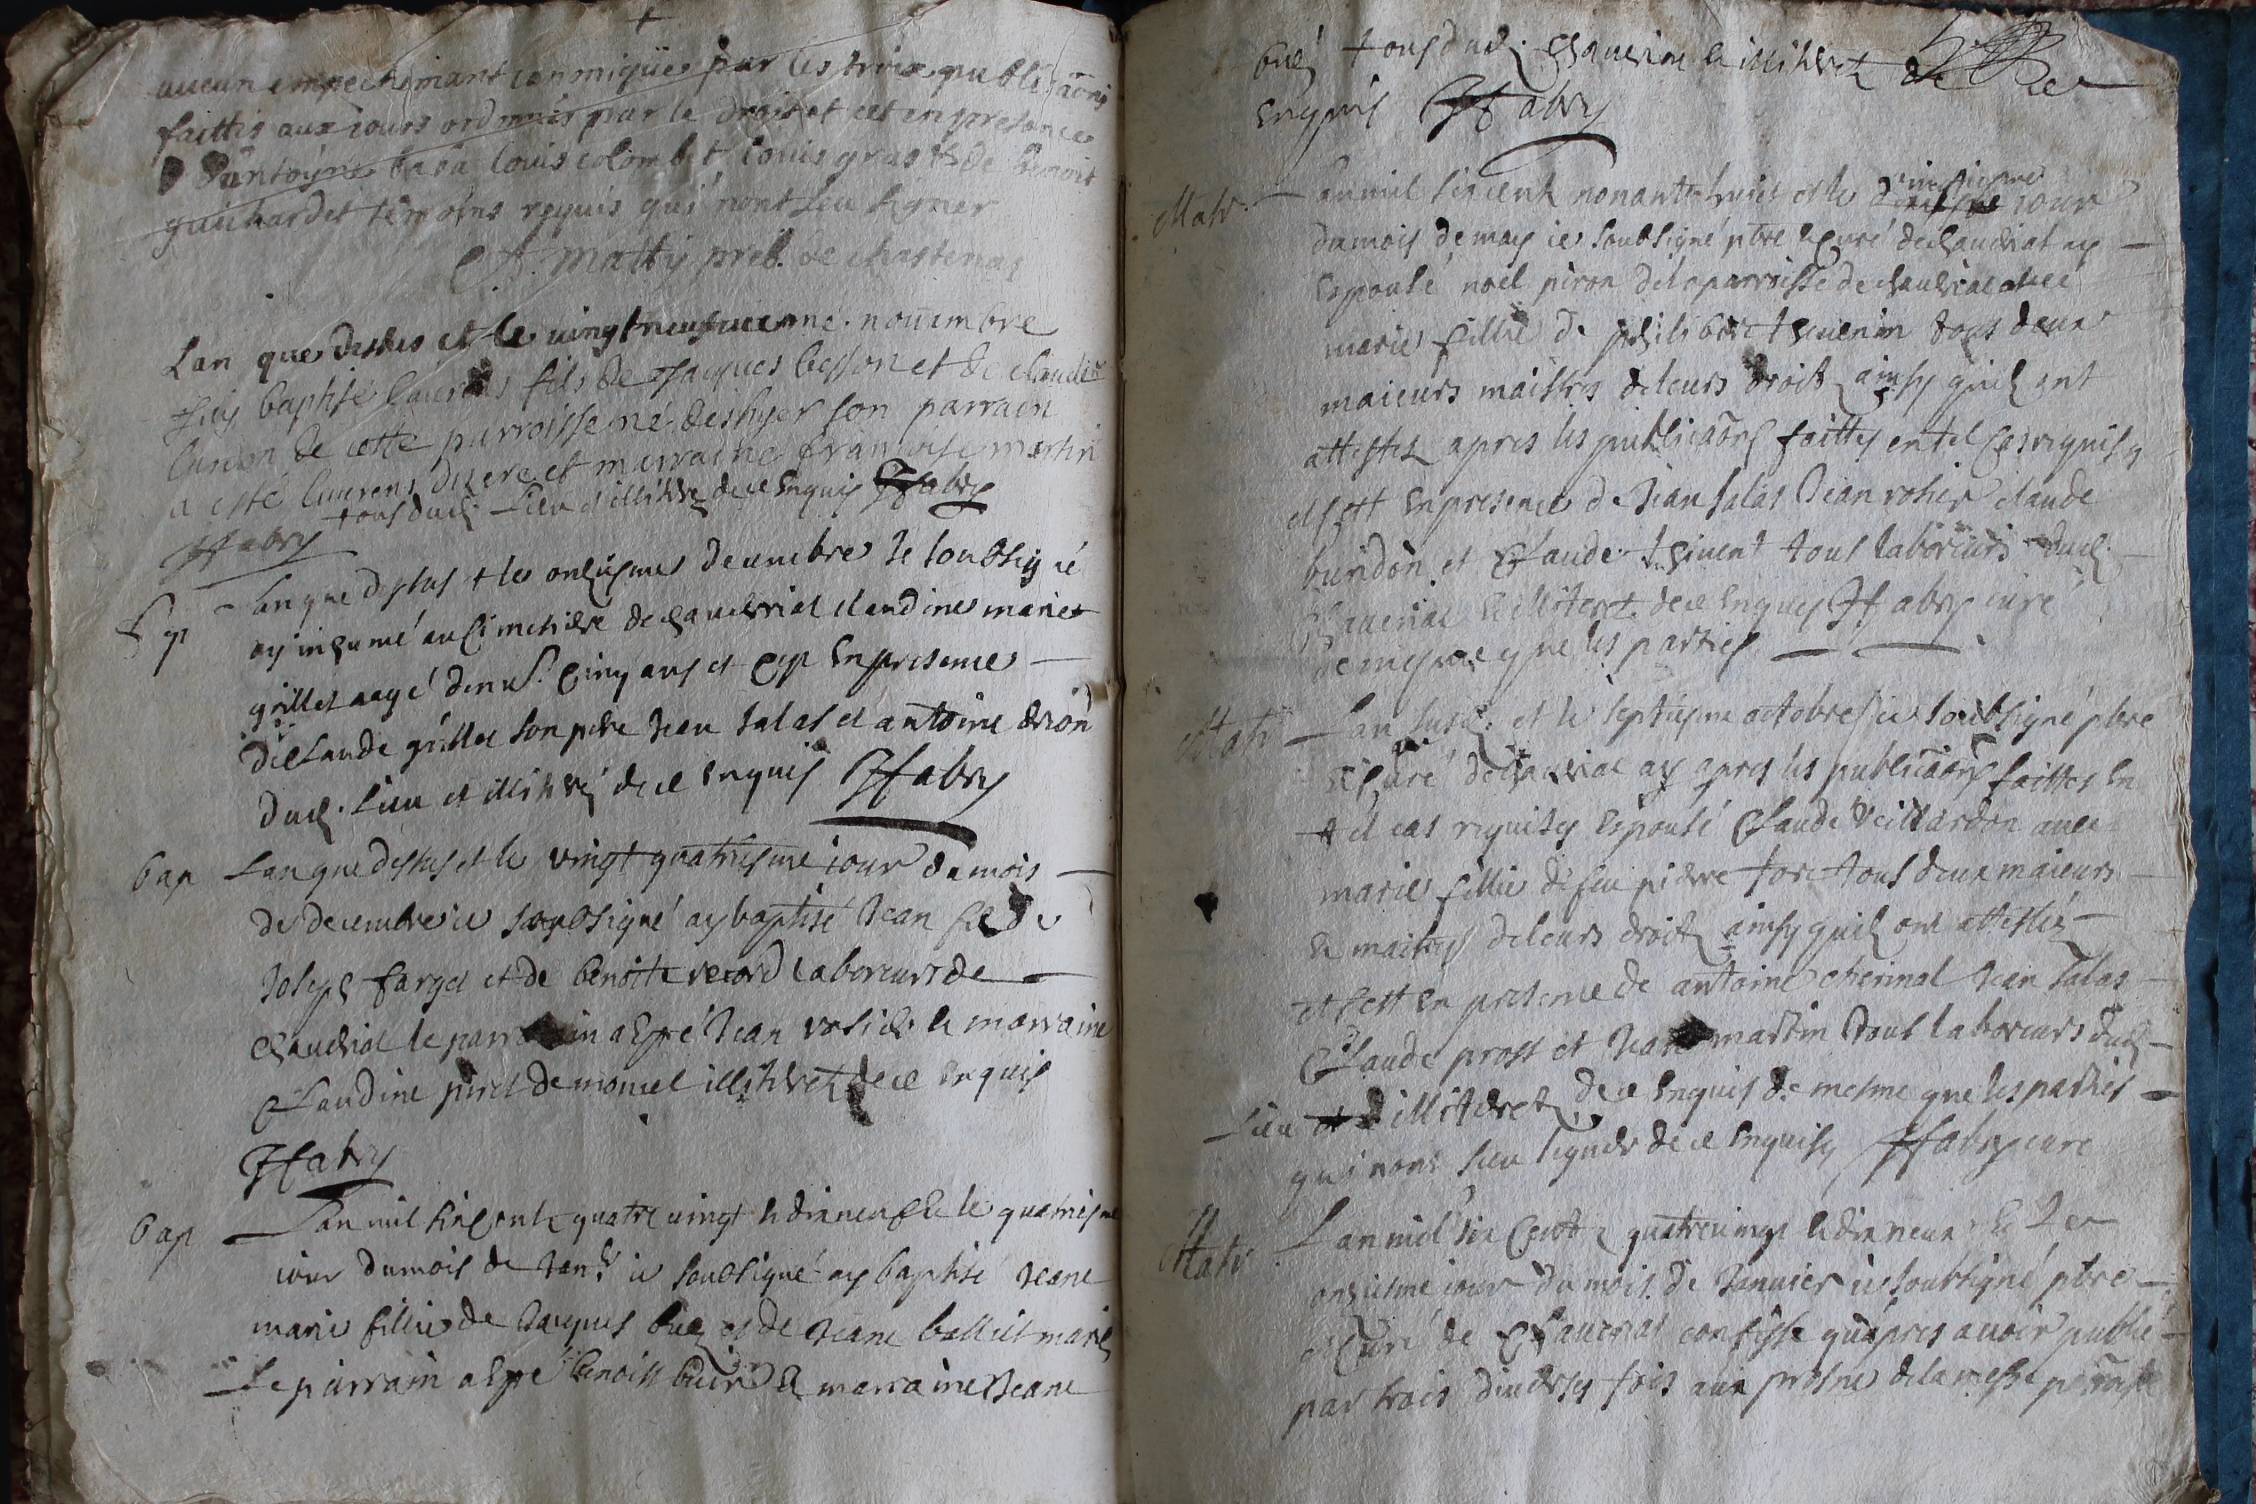 aucun empechemant canmique par les troix publicaōns
faittes aux iours ordonnés par le droit et cet en presance
D'antoyne bada louis colombet louis gras et de benoit
guichardet témoins requis qui n'ont sceu signer
Matty preb. de chastenay
Lan que dessus et le uingtneufuieme nouembre
fuis baptisé laurens fils de Jacques besson et de claudine
de cette parroisse né deshyer son parrain
a esté laurens dizere et marraine francoise martin
tous dud. lieu et illitere de ce enquis JFabry
JFabry
Sep lan que dessus et le onziesme decembre Je soubsigné
ay inhumé au simetiere de chaueiriat claudine marie
grillet aagé denu. cinq ans et cep en presence
de Claude grillet son pere Jean salas et antoine drion
dud. lieu et illitere de ce enquis JFabry
bap Lan que dessus et le vingt quatriesme iour du mois
de decembre ie soubsigné ay baptisé Jean fil de
Joseph farget et de benoite record laboreurs de
chaueiriat le parrain a esté Jean rosier la marraine
Claudine piret de moncel illiteret de ce enquis
JFabry
bap Lan mil six cent quatre uingt et dix neuf et le quatriesme
iour du mois de Jan.er ie soubsigné ay baptisé Jeane
marie fillie de Jacques buez et de Jeane balliet mariés
Le parrain a esté benoist buez et marraine Jeane
buez tous dud. chaueiriat et illiteret de ce
enquis JFabry
Matr. Lan mil six cent nonante huict et le vingtiesme iour
du mois de may ie soubsigné ptre et curé de chaueiriat ay
espousé noel piron de la parroisse de chaueiriat auec
marie fillie de philibert thuenin tous deux
maieurs maistres de leurs droitz ainsy quilz ont
attestez apres les publicaōns faittes en tel cas requises
et cest en presence de Jean salas Jean rosier claude
buridon et Claude thiuent tous laboreurs dud.
Chaueriat et illiteret de ce enquis JFabry curé
de mesme que les parties
Matr Lan susd. et le septiesme octobre ie soubsigné ptre
et curé de chaueiriat ay apres les publicaōns faittes en
tel cas requises espousé Claude Veillardon auec
marie fillie de feu pierre tore tous deux maieurs
et maitres de leurs droitz ainsy quilz ont attestéz
et cest en presence de antoine cherinal Jean salas
Claude prost et Jean martin tous laboreurs dud.
Lieu illiteret de ce enquis de mesme que les parties
qui nont sceu signer de ce enquis JFabry curé
Matr Lan mil six Centz quatreuingt et dix neuf et le
onziesme iour du mois de Januier ie soubsigné ptre
et Curé de Chaueriat confesse qu'apres auoir publié
par trois diuerses fois aux prosne de la messe